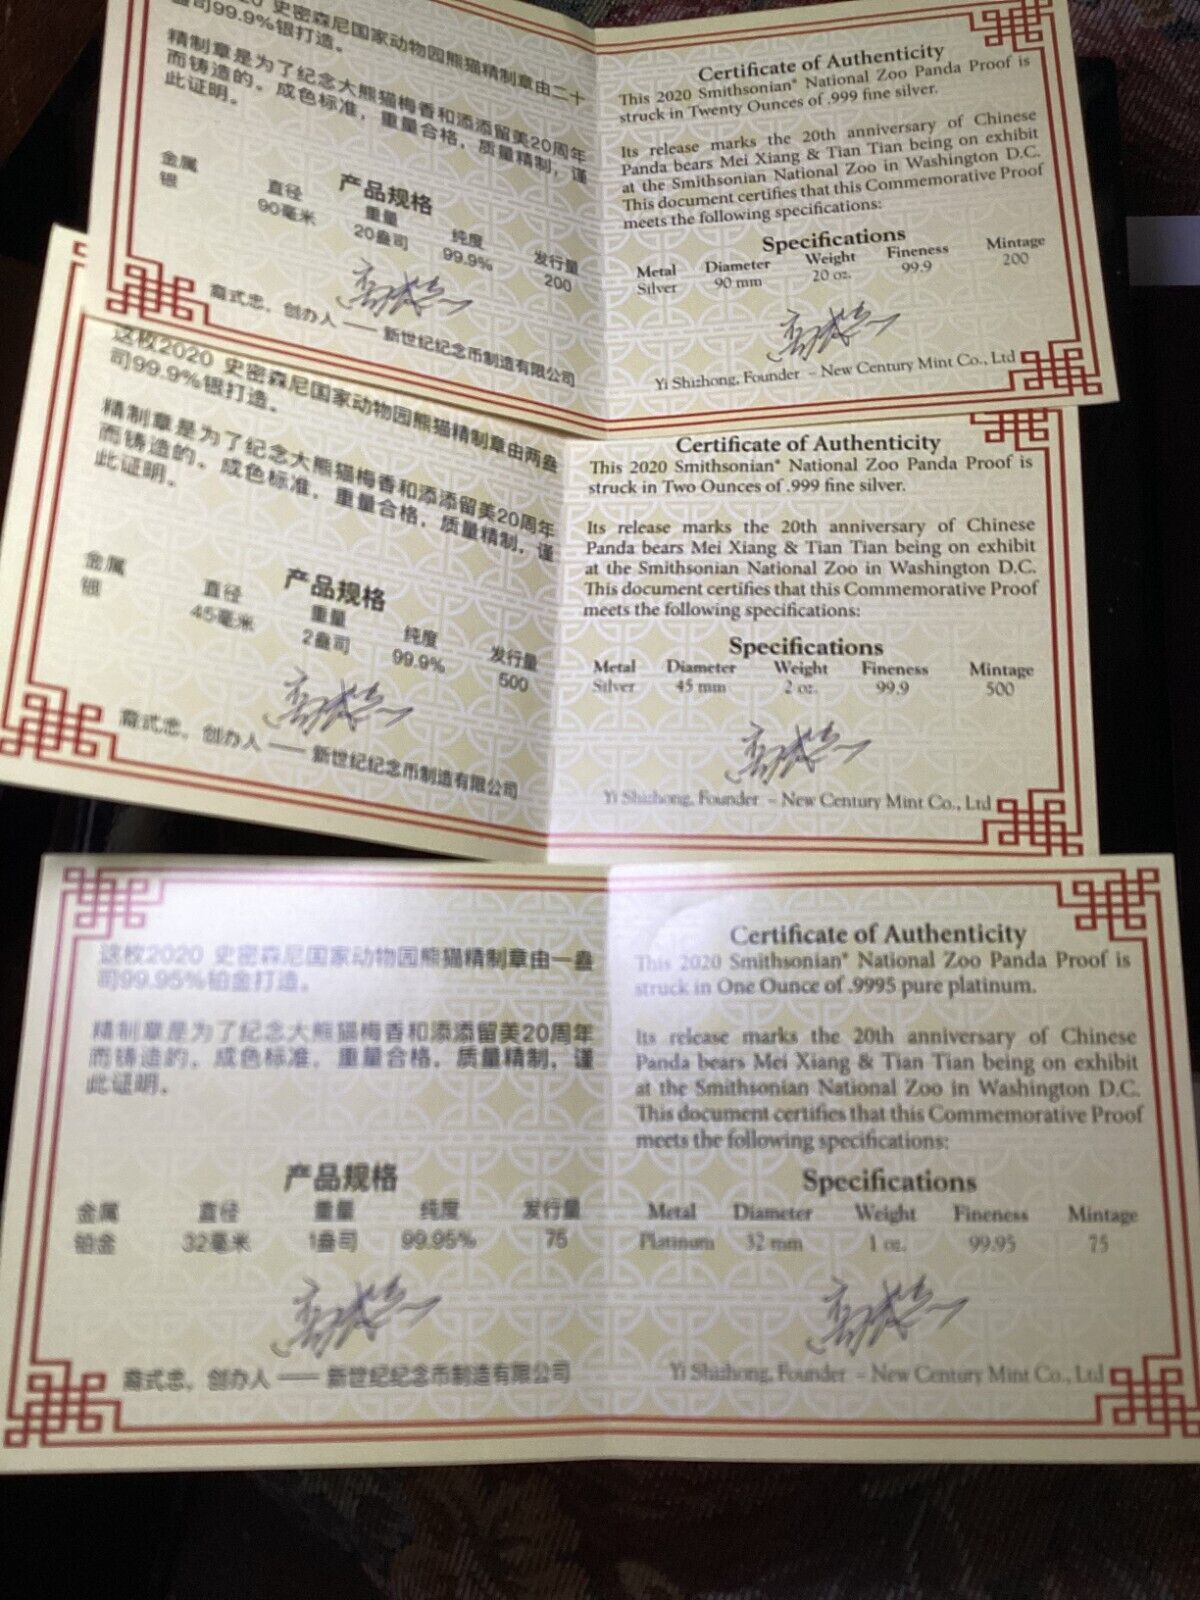 2020 史密森尼国家动物园熊猫精制章由二十
盎司99.9%银打造。
精制章是为了纪念大熊猫梅香和添添留美20周年
而铸造的。成色标准，重量合格，质量精制，谨
此证明。
产品规格
金属 直径 重量 纯度 发行量
银 90毫米 20盎司 99.9% 200
裔式忠，创办人 —— 新世纪纪念币制造有限公司
Certificate of Authenticity
This 2020 Smithsonian® National Zoo Panda Proof is
struck in Twenty Ounces of .999 fine silver.
Its release marks the 20th anniversary of Chinese
Panda bears Mei Xiang & Tian Tian being on exhibit
at the Smithsonian National Zoo in Washington D.C.
This document certifies that this Commemorative Proof
meets the following specifications:
Specifications
Metal Diameter Weight Fineness Mintage
Silver 90 mm 20 oz. 99.9 200
Yi Shizhong, Founder – New Century Mint Co., Ltd
这枚2020 史密森尼国家动物园熊猫精制章由两盎
司99.9%银打造。
精制章是为了纪念大熊猫梅香和添添留美20周年
而铸造的。成色标准，重量合格，质量精制，谨
此证明。
产品规格
金属 直径 重量 纯度 发行量
银 45毫米 2盎司 99.9% 500
裔式忠，创办人 —— 新世纪纪念币制造有限公司
Certificate of Authenticity
This 2020 Smithsonian® National Zoo Panda Proof is
struck in Two Ounces of .999 fine silver.
Its release marks the 20th anniversary of Chinese
Panda bears Mei Xiang & Tian Tian being on exhibit
at the Smithsonian National Zoo in Washington D.C.
This document certifies that this Commemorative Proof
meets the following specifications:
Specifications
Metal Diameter Weight Fineness Mintage
Silver 45 mm 2 oz. 99.9 500
Yi Shizhong, Founder – New Century Mint Co., Ltd
这枚2020 史密森尼国家动物园熊猫精制章由一盎
司99.95%铂金打造。
精制章是为了纪念大熊猫梅香和添添留美20周年
而铸造的。成色标准，重量合格，质量精制，谨
此证明。
产品规格
金属 直径 重量 纯度 发行量
铂金 32毫米 1盎司 99.95% 75
裔式忠，创办人 —— 新世纪纪念币制造有限公司
Certificate of Authenticity
This 2020 Smithsonian® National Zoo Panda Proof is
struck in One Ounce of .9995 pure platinum.
Its release marks the 20th anniversary of Chinese
Panda bears Mei Xiang & Tian Tian being on exhibit
at the Smithsonian National Zoo in Washington D.C.
This document certifies that this Commemorative Proof
meets the following specifications:
Specifications
Metal Diameter Weight Fineness Mintage
Platinum 32 mm 1 oz. 99.95 75
Yi Shizhong, Founder – New Century Mint Co., Ltd